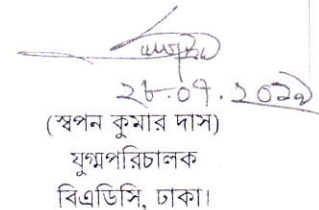 ২৮.০৭.২০২১
(স্বপন কুমার দাস)
যুগ্মপরিচালক
বিএডিসি, ঢাকা।